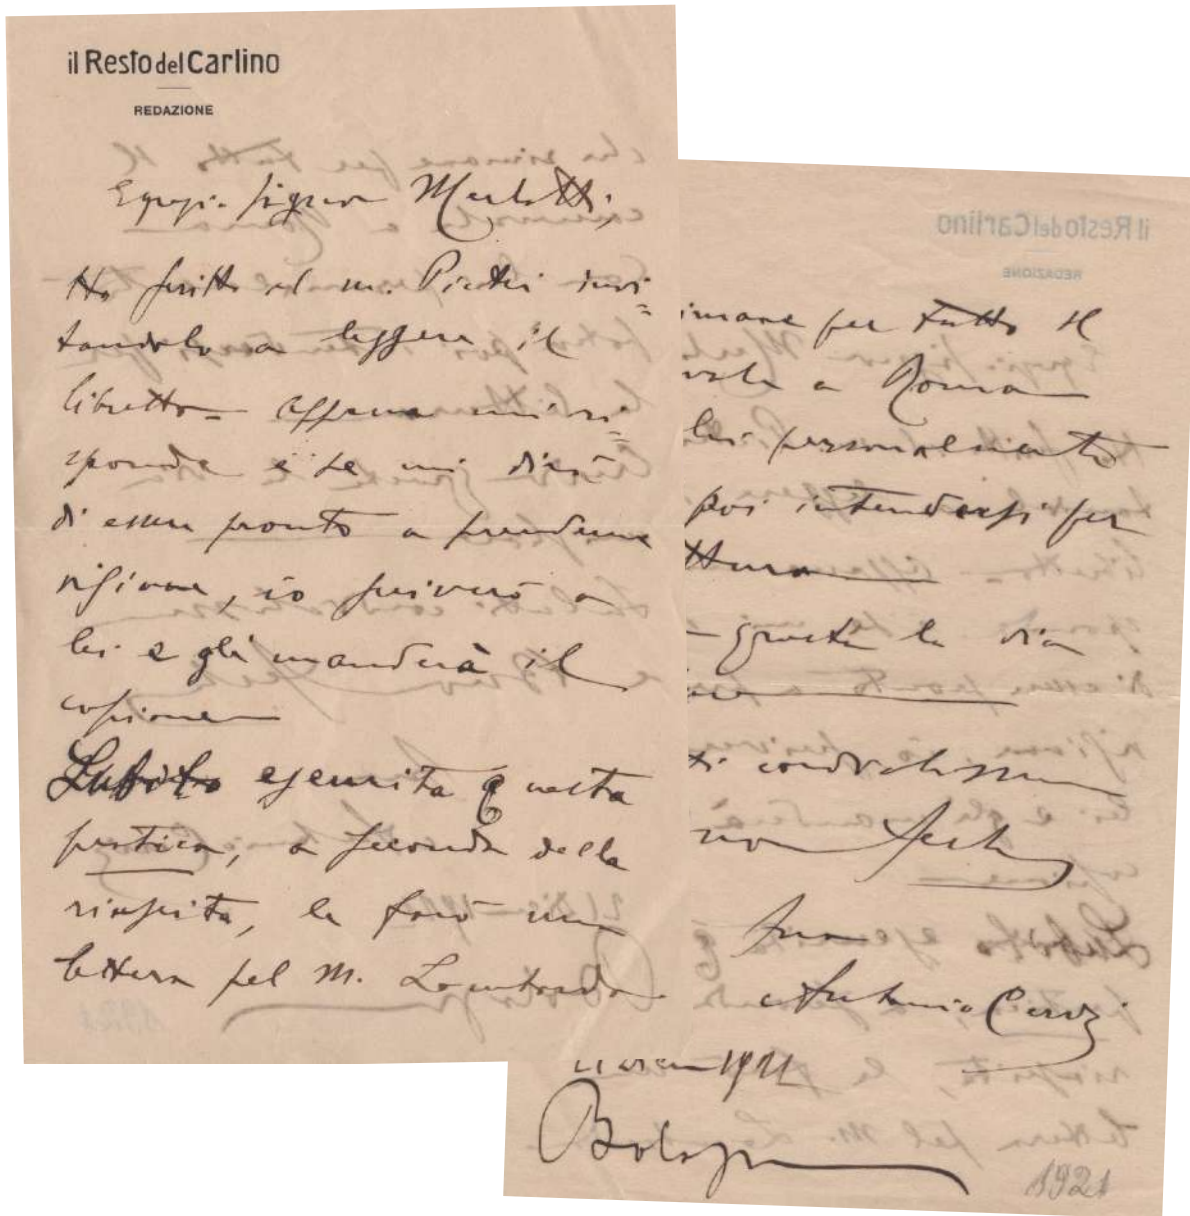 il Resto del Carlino
REDAZIONE
Egregio Signor
Ho scritto al m. invi=
tandolo a leggere il
libretto - appena mi ri=
sponde e se mi dirà
di essere pronto a prenderne
visione, io scriverò a
lei e gli manderà il
copione
Subito eseguita questa
pratica, a seconda della
risposta, le farò una
lettera pel M. Lombardo
imane per tutto il
a Roma
lei personalmente
poi intendersi per
ttura
giusta la via
ti cordialissimi
Suo
Antonio
1921
Bologna
1921